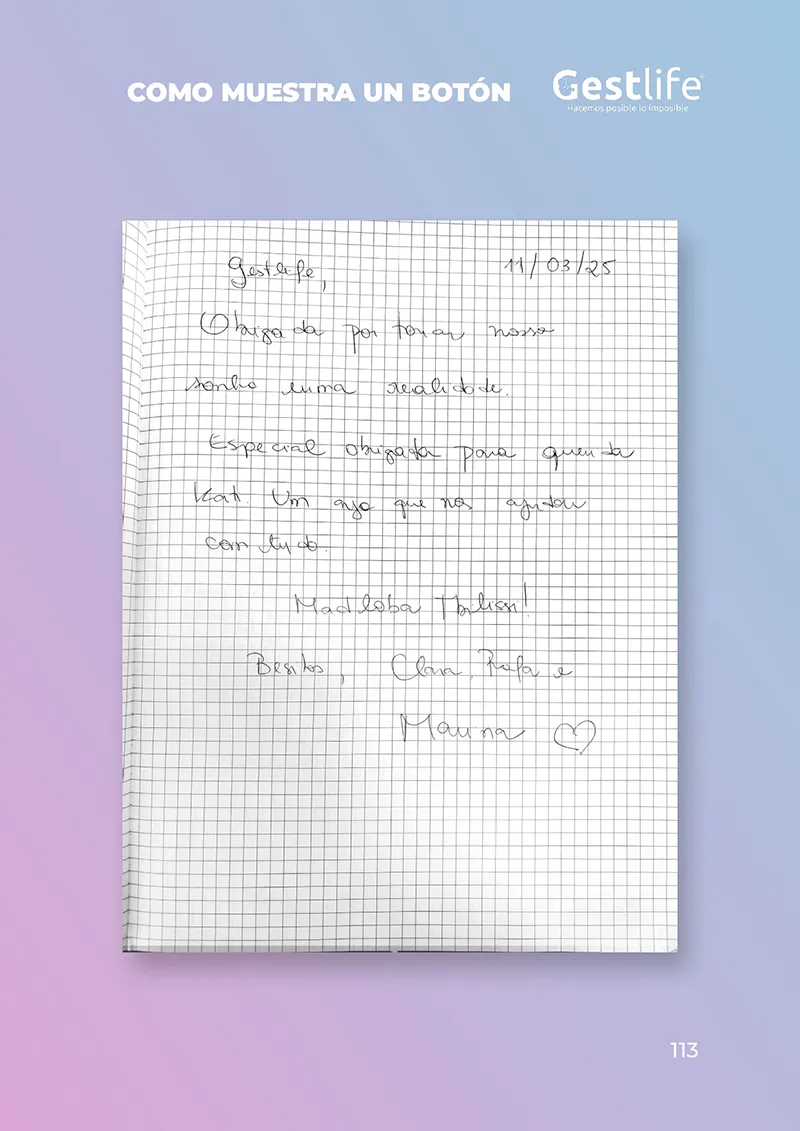 COMO MUESTRA UN BOTÓN
Gestlife
Hacemos posible lo imposible
Gestlife,
11/03/25
Obrigada por tornar nosso
sonho numa realidade.
Especial obrigada para querida
Kati. Um anjo que nos ajudou
com tudo.
Madloba Tbilissi!
Besitos, Clara, Rafa e
Marina ♡
113